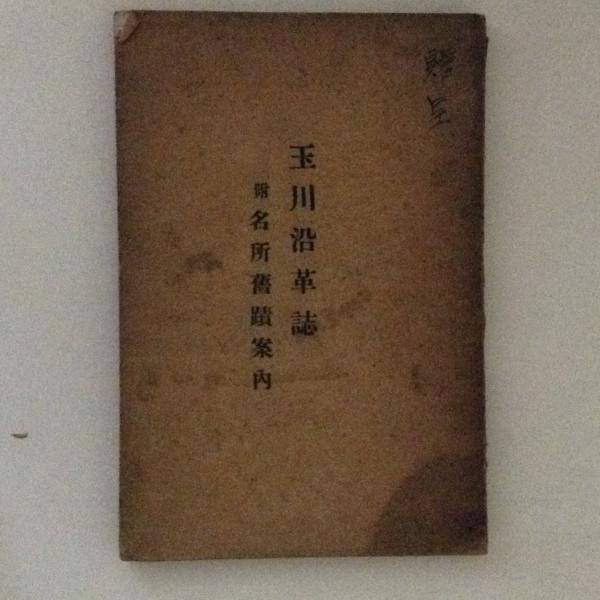 贈呈
玉川沿革誌
附名所舊蹟案内